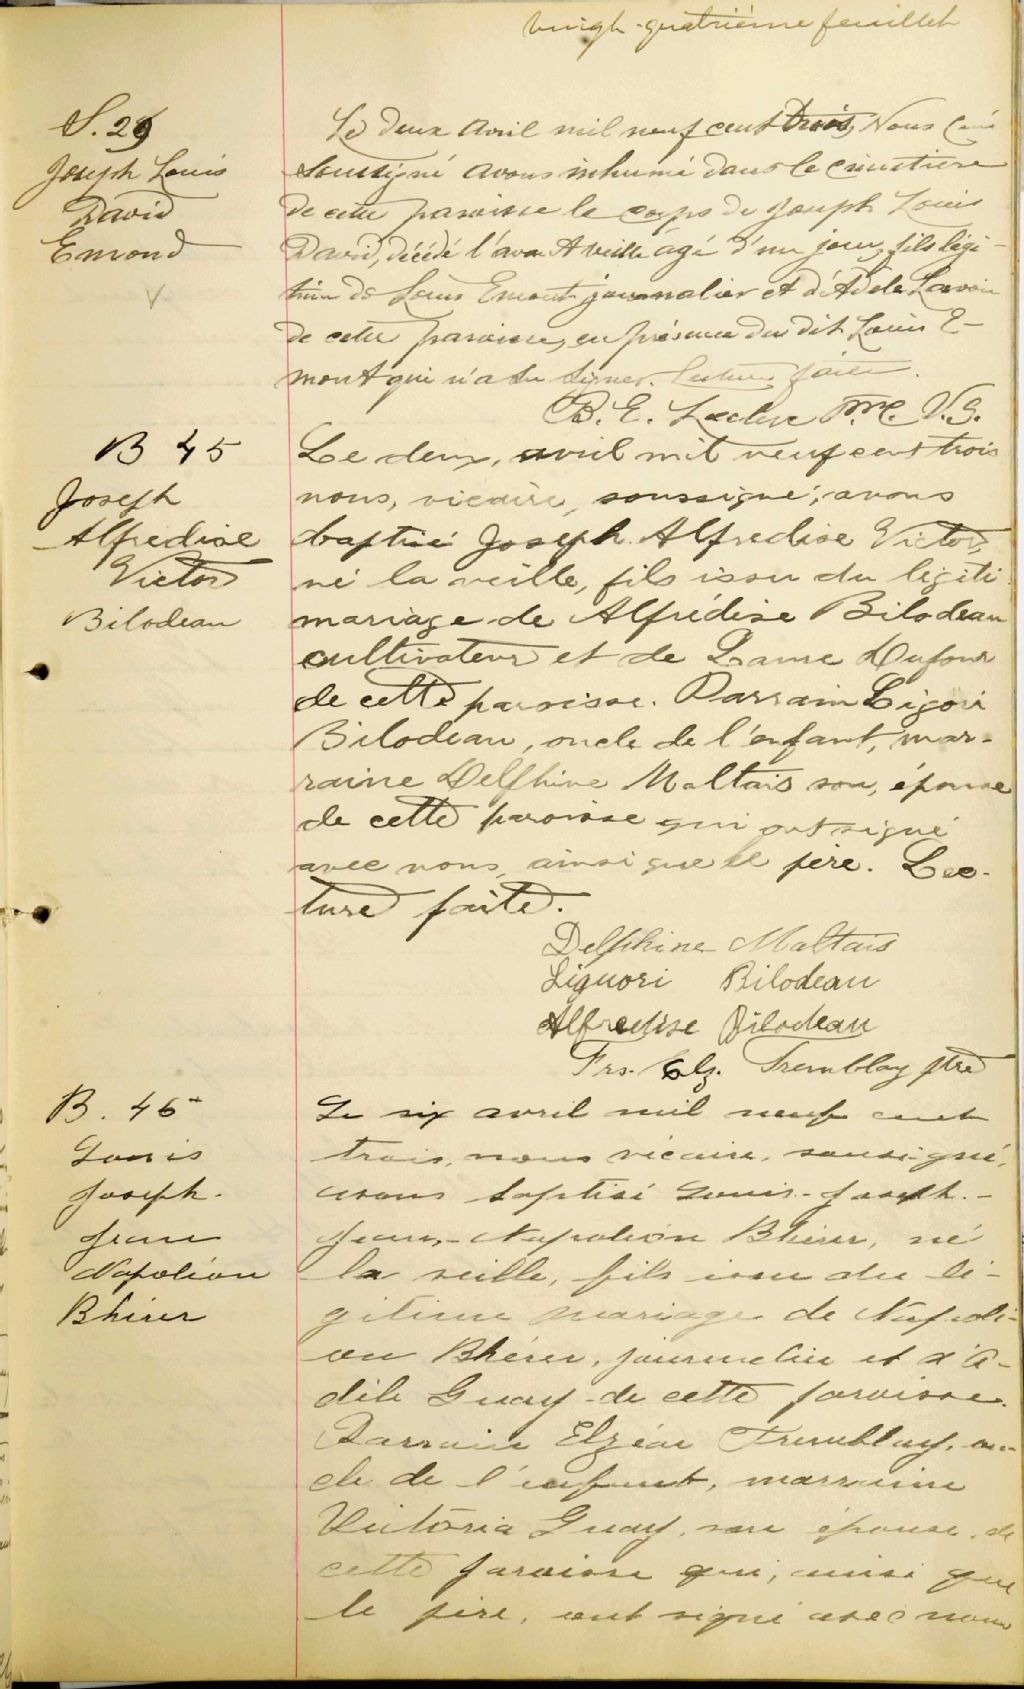 vingt-quatrième feuillet
S. 29
Joseph Louis
David
Emond
Le deux avril mil neuf cent trois, Nous Curé
soussigné avons inhumé dans le cimetière
de cette paroisse le corps de Joseph Louis
David, décédé l'avant veille âgé d'un jour, fils légi-
time de Louis Emont journalier et d'Adèle Lavoie
de cette paroisse, en présence du dit Louis E-
mont qui n'a su signer. Lecture faite.
B. E. Leclerc Ptre. V.G.
B 45
Joseph
Alfredise
Victor
Bilodeau
Le deux, avril mil neuf cent trois
nous, vicaire, soussigné, avons
baptisé Joseph Alfredise Victor,
né la veille, fils issu du légiti
mariage de Alfrédise Bilodeau
cultivateur et de Laure Dufour
de cette paroisse. Parrain Ligori
Bilodeau, oncle de l'enfant, mar-
raine Delphine Maltais son, épouse
de cette paroisse qui ont signé
avec nous, ainsi que le père. Lec-
ture faite.
Delphine Maltais
Liguori Bilodeau
Alfredise Bilodeau
Frs. Elz. Tremblay ptre
B. 46
Louis
Joseph-
Jean
Napoléon
Bhérer
Le six avril mil neuf cent
trois, nous vicaire, soussigné,
avons baptisé Louis-Joseph-
Jean-Napoléon Bhérer, né
la veille, fils issu du lé-
gitime mariage de Napolé-
on Bhérer, journalier et d'A-
dèle Guay de cette paroisse.
Parrain Elzéar Tremblay, on-
cle de l'enfant, marraine
Victoria Guay, son épouse, de
cette paroisse qui, ainsi que
le père, ont signé avec nous